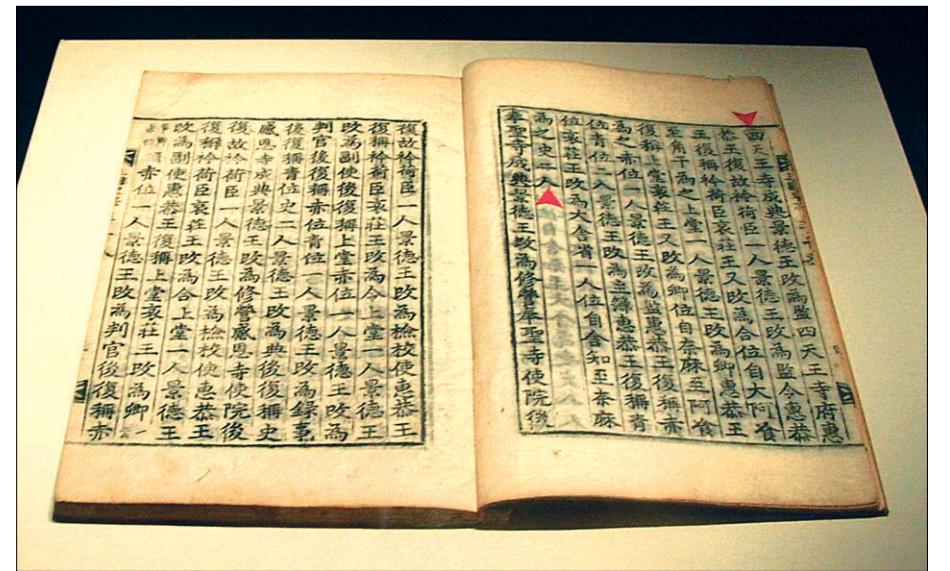 四天王寺成典景德王改為監四天王寺府惠
恭王復故衿荷臣一人景德王改為監令惠恭
王復稱衿荷臣哀莊王又改為令位自大阿飡
至角干為之上堂一人景德王改為卿惠恭王
復稱上堂哀莊王又改為卿位自奈麻至阿飡
為之赤位一人景德王改為監惠恭王復稱赤
位青位二人景德王改為主簿惠恭王復稱青
位哀莊王改為大舍省一人位自舍知至奈麻
為之史二人
奉聖寺成典景德王改為修營奉聖寺使院後
復故衿荷臣一人景德王改為檢校使惠恭王
復稱衿荷臣哀莊王改為令上堂一人景德王
改為副使後復稱上堂赤位一人景德王改為
判官後復稱赤位青位一人景德王改為錄事
後復稱青位史二人景德王改為典後復稱史
感恩寺成典景德王改為修營感恩寺使院後
復故衿荷臣一人景德王改為檢校使惠恭王
復稱衿荷臣哀莊王改為令上堂一人景德王
改為副使惠恭王復稱上堂哀莊王改為卿一
赤位一人景德王改為判官後復稱赤